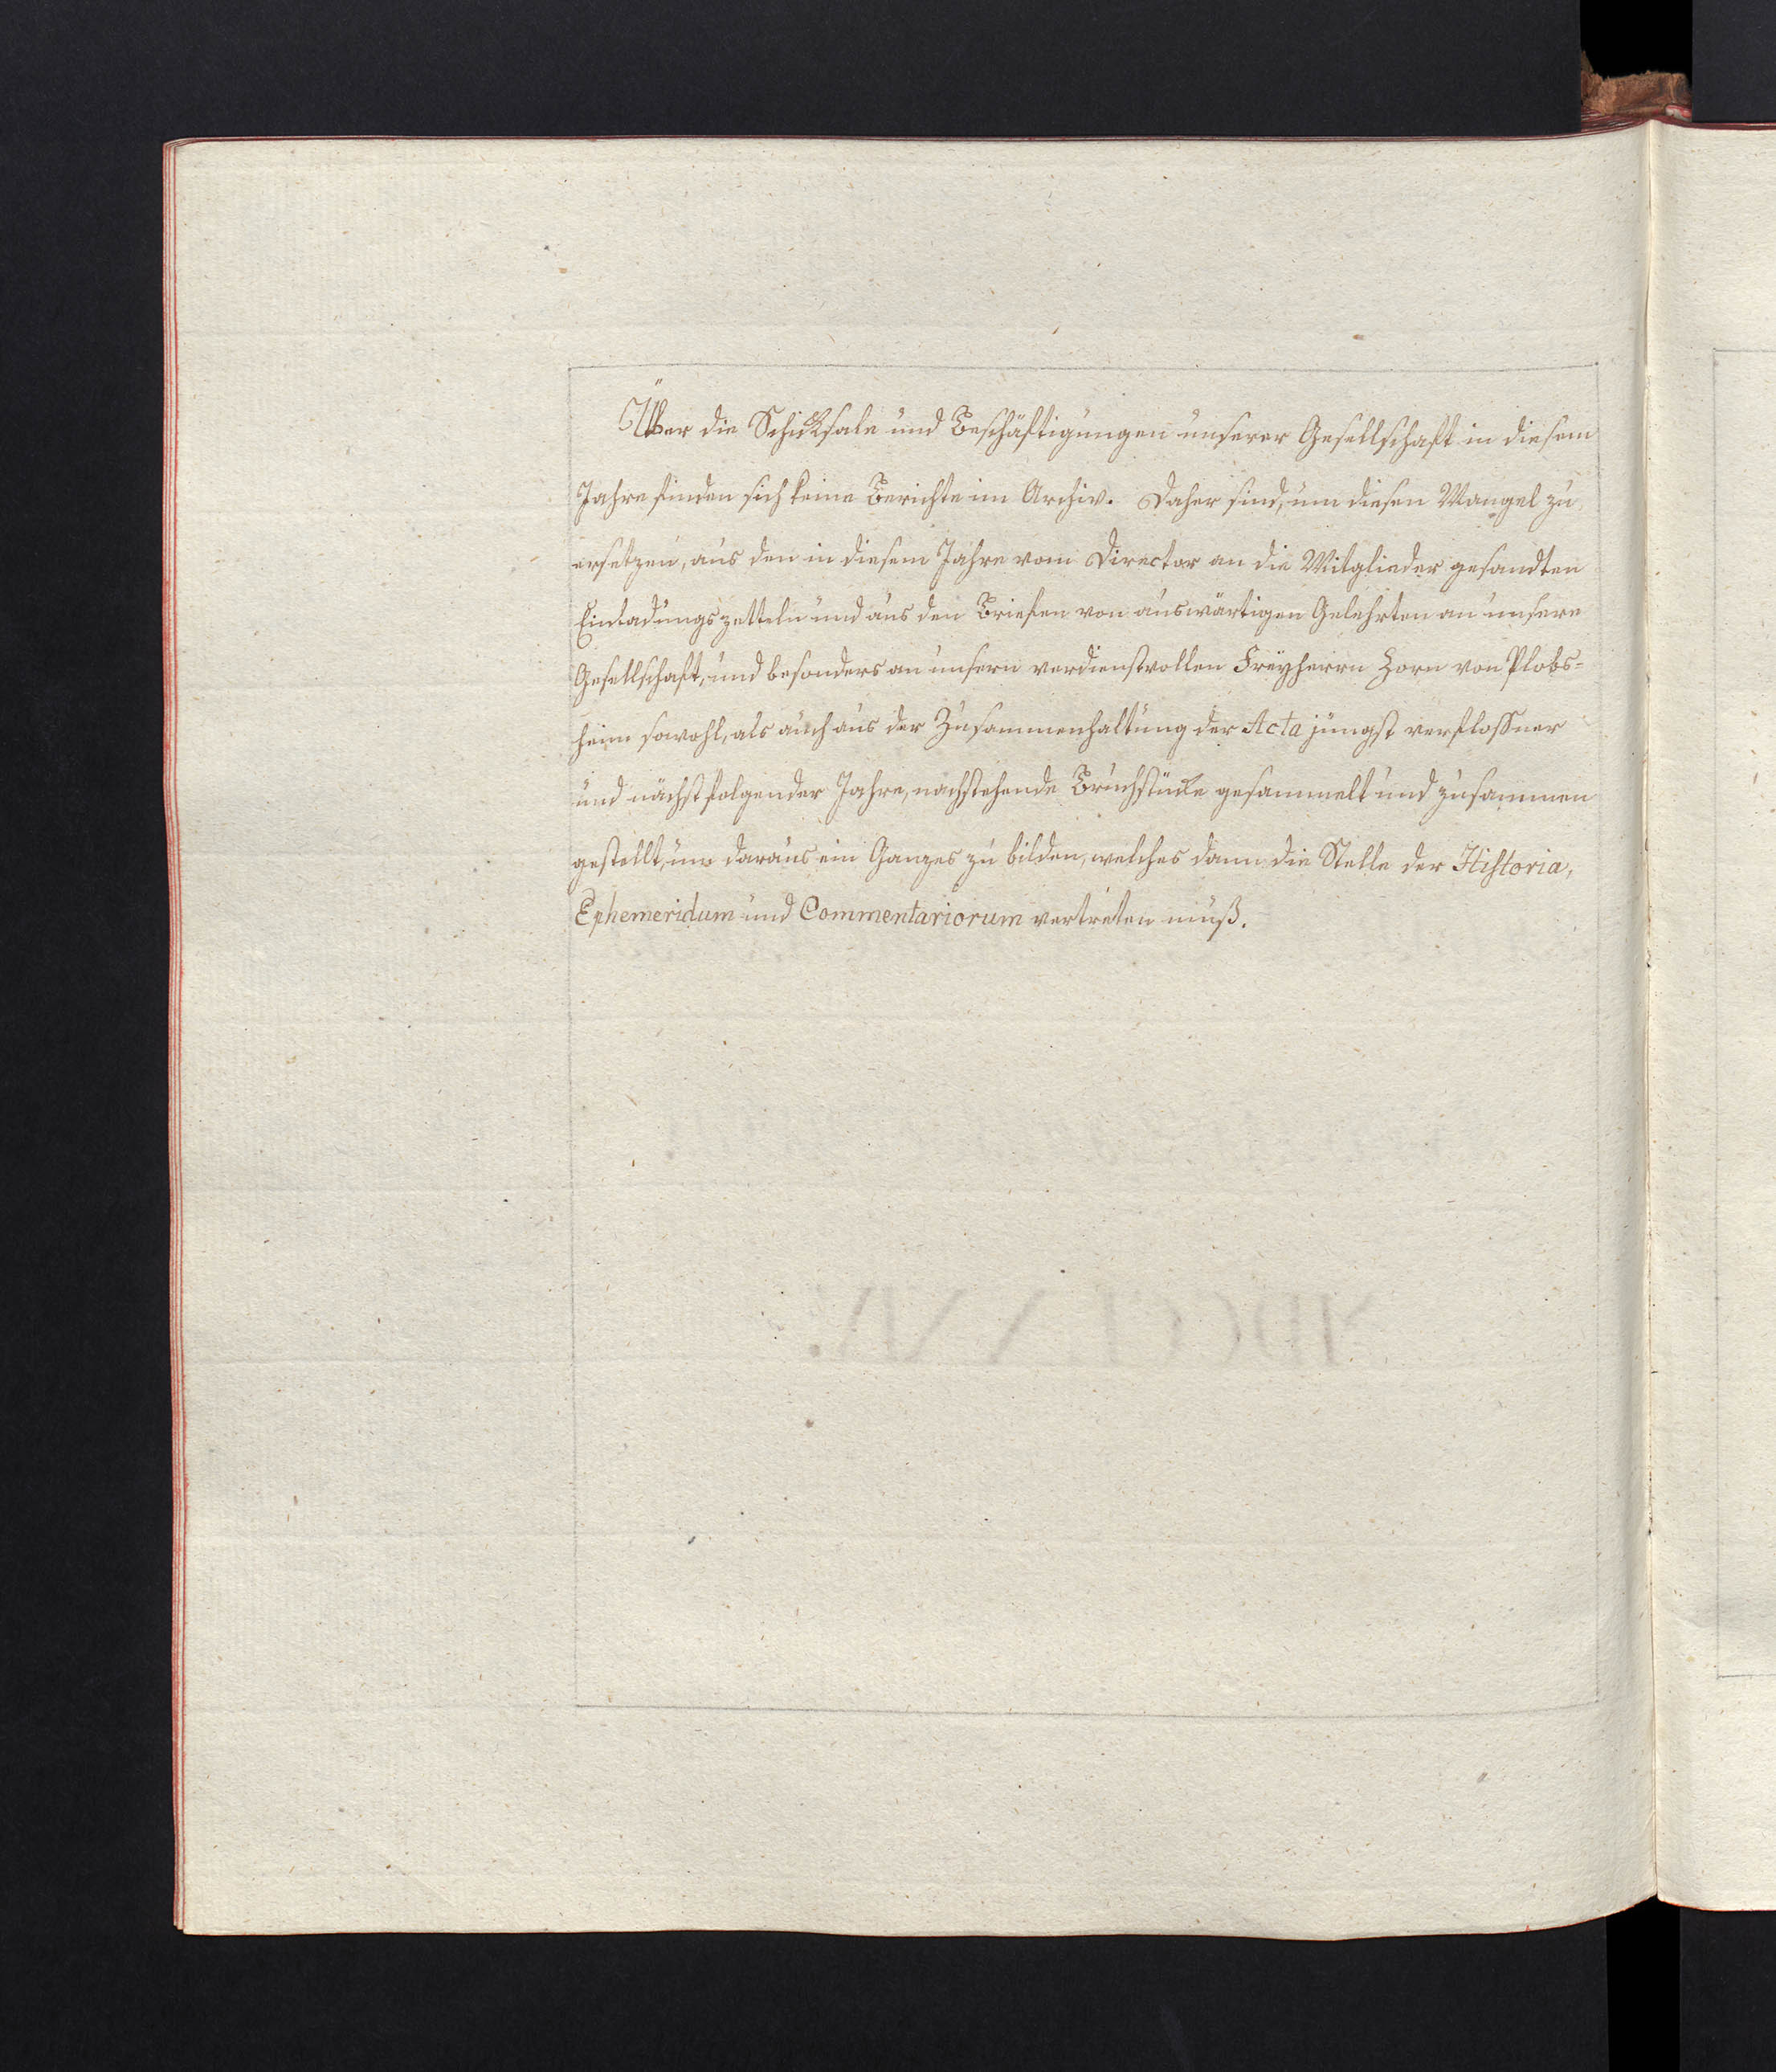 Über die Schicksale und Beschäftigungen unserer Gesellschaft in diesem
Jahre finden sich keine Berichte im Archiv. Daher sind, um diesen Mangel zu
ersetzen, aus den in diesem Jahre vom Director an die Mitglieder gesandten
Einladungszetteln und aus den Briefen von auswärtigen Gelehrten an unsere
Gesellschaft, und besonders an unsern verdienstvollen Freyherrn Zorn von Plobs-
heim sowohl, als auch aus der Zusammenhaltung der Acta jüngst verfloßner
und nächstfolgender Jahre, nachstehende Bruchstücke gesammelt und zusammen
gestellt, um daraus ein Ganzes zu bilden, welches dann die Stelle der Historia,
Ephemeridum und Commentariorum vertreten muß.